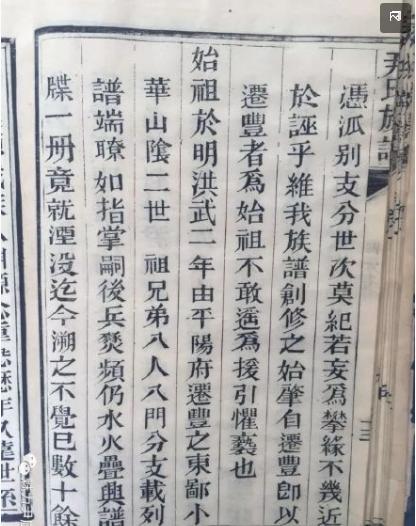 尹氏族譜
憑泒别支分世次莫紀若妄爲攀緣不幾近
於誣乎維我族譜創修之始肇自遷豐卽以
遷豐者爲始祖不敢遥爲援引懼褻也
始祖於明洪武二年由平陽府遷豐之東鄙小
華山陰二世 祖兄弟八人八門分支載列
譜端瞭如指掌嗣後兵燹頻仍水火疊興譜
牒一册竟就湮没迄今溯之不覺已數十餘